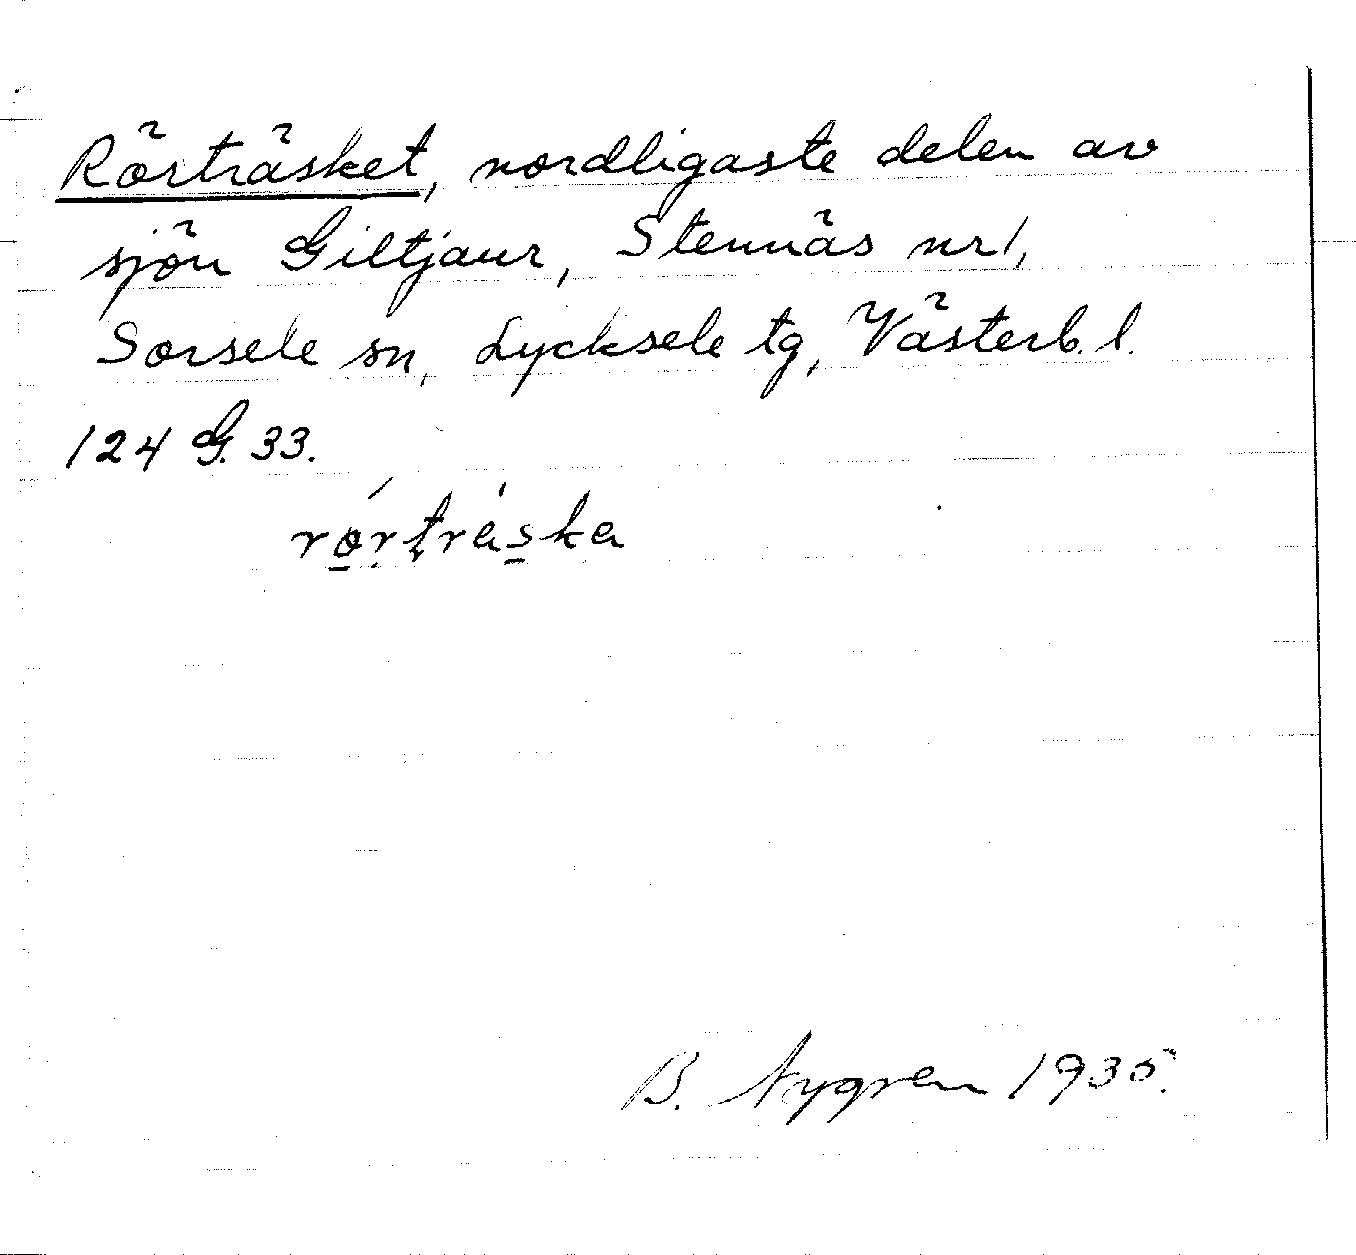 Rörträsket, nordligaste delen av
sjön Giltjaur, Stennäs nr 1,
Sorsele sn, Lycksele tg, Västerb. l.
124 G. 33.
rö́rträ́ska
B. Nygren 1935.